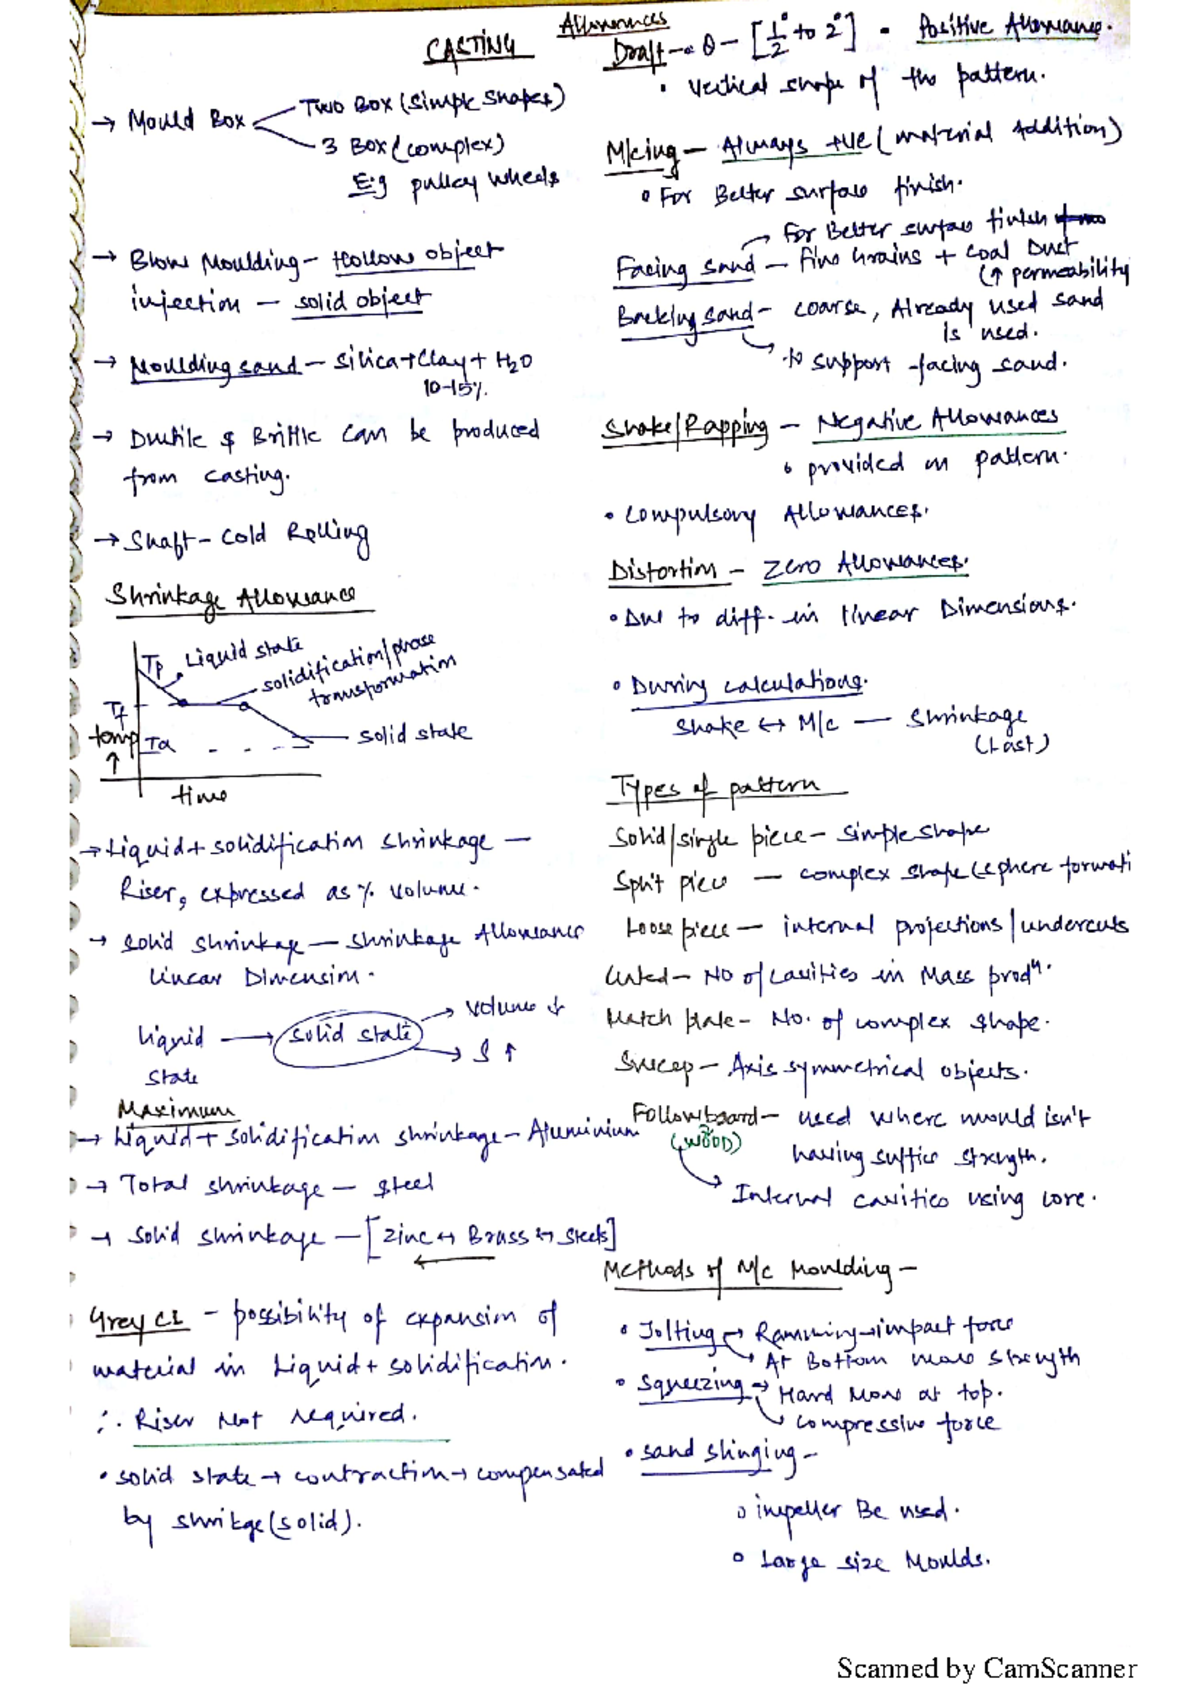 CASTING
→ Mould Box
Two Box (simple shapes)
3 Box (complex)
E.g pulley wheels
→ Blow Moulding - Hollow object
injection - solid object
→ Moulding sand - silica + clay + H2O
10-15%.
→ Ductile & Brittle can be produced
from casting.
→ Shaft - cold Rolling
Shrinkage Allowance
Tp
Liquid state
solidification/phase
transformation
Tf
temp
↑
Ta
solid state
time
→ Liquid + solidification shrinkage -
Riser, expressed as % volume.
→ Solid shrinkage - shrinkage Allowance
Linear Dimension.
Liquid → solid state
state
→ volume ↓
→ S ↑
Maximum
→ Liquid + solidification shrinkage - Aluminium
→ Total shrinkage - steel
→ solid shrinkage - [zinc ↔ Brass ↔ steels]
←
Grey CI - possibility of expansion of
material in Liquid + solidification.
∴ Riser Not required.
• solid state → contraction → compensated
by shrinkge (solid).
Allowances
Draft → θ - [1/2° to 2°] • Positive Allowance.
• vertical shape of the pattern.
M/cing - Always +ve (material Addition)
• For Better surface finish.
→ For Better surface finish
Facing sand - fine Grains + coal Dust
(↑ permeability
Backing sand - coarse, Already used sand
is used.
→ to support facing sand.
Shake/Rapping - Negative Allowances
• provided on pattern.
• compulsory Allowances.
Distortion - zero Allowances.
• Due to diff. in linear Dimensions.
• During calculations.
Shake ↔ M/c - shrinkage
(Last)
Types of pattern
Solid/single piece - simple shape
Split piece - complex shape (sphere formati
Loose piece - internal projections/undercuts
Gated - No of cavities in Mass prodn.
Match plate - No. of complex shape.
Sweep - Axis symmetrical objects.
Followboard - used where mould isn't
(WOOD)
having suffice strength.
→ Internal cavities using core.
Methods of M/c Moulding -
• Jolting → Ramming → impact force
→ At Bottom more strength
• Squeezing → Hard more at top.
→ compressive force
• sand slinging -
○ impeller Be used.
○ Large size Moulds.
Scanned by CamScanner